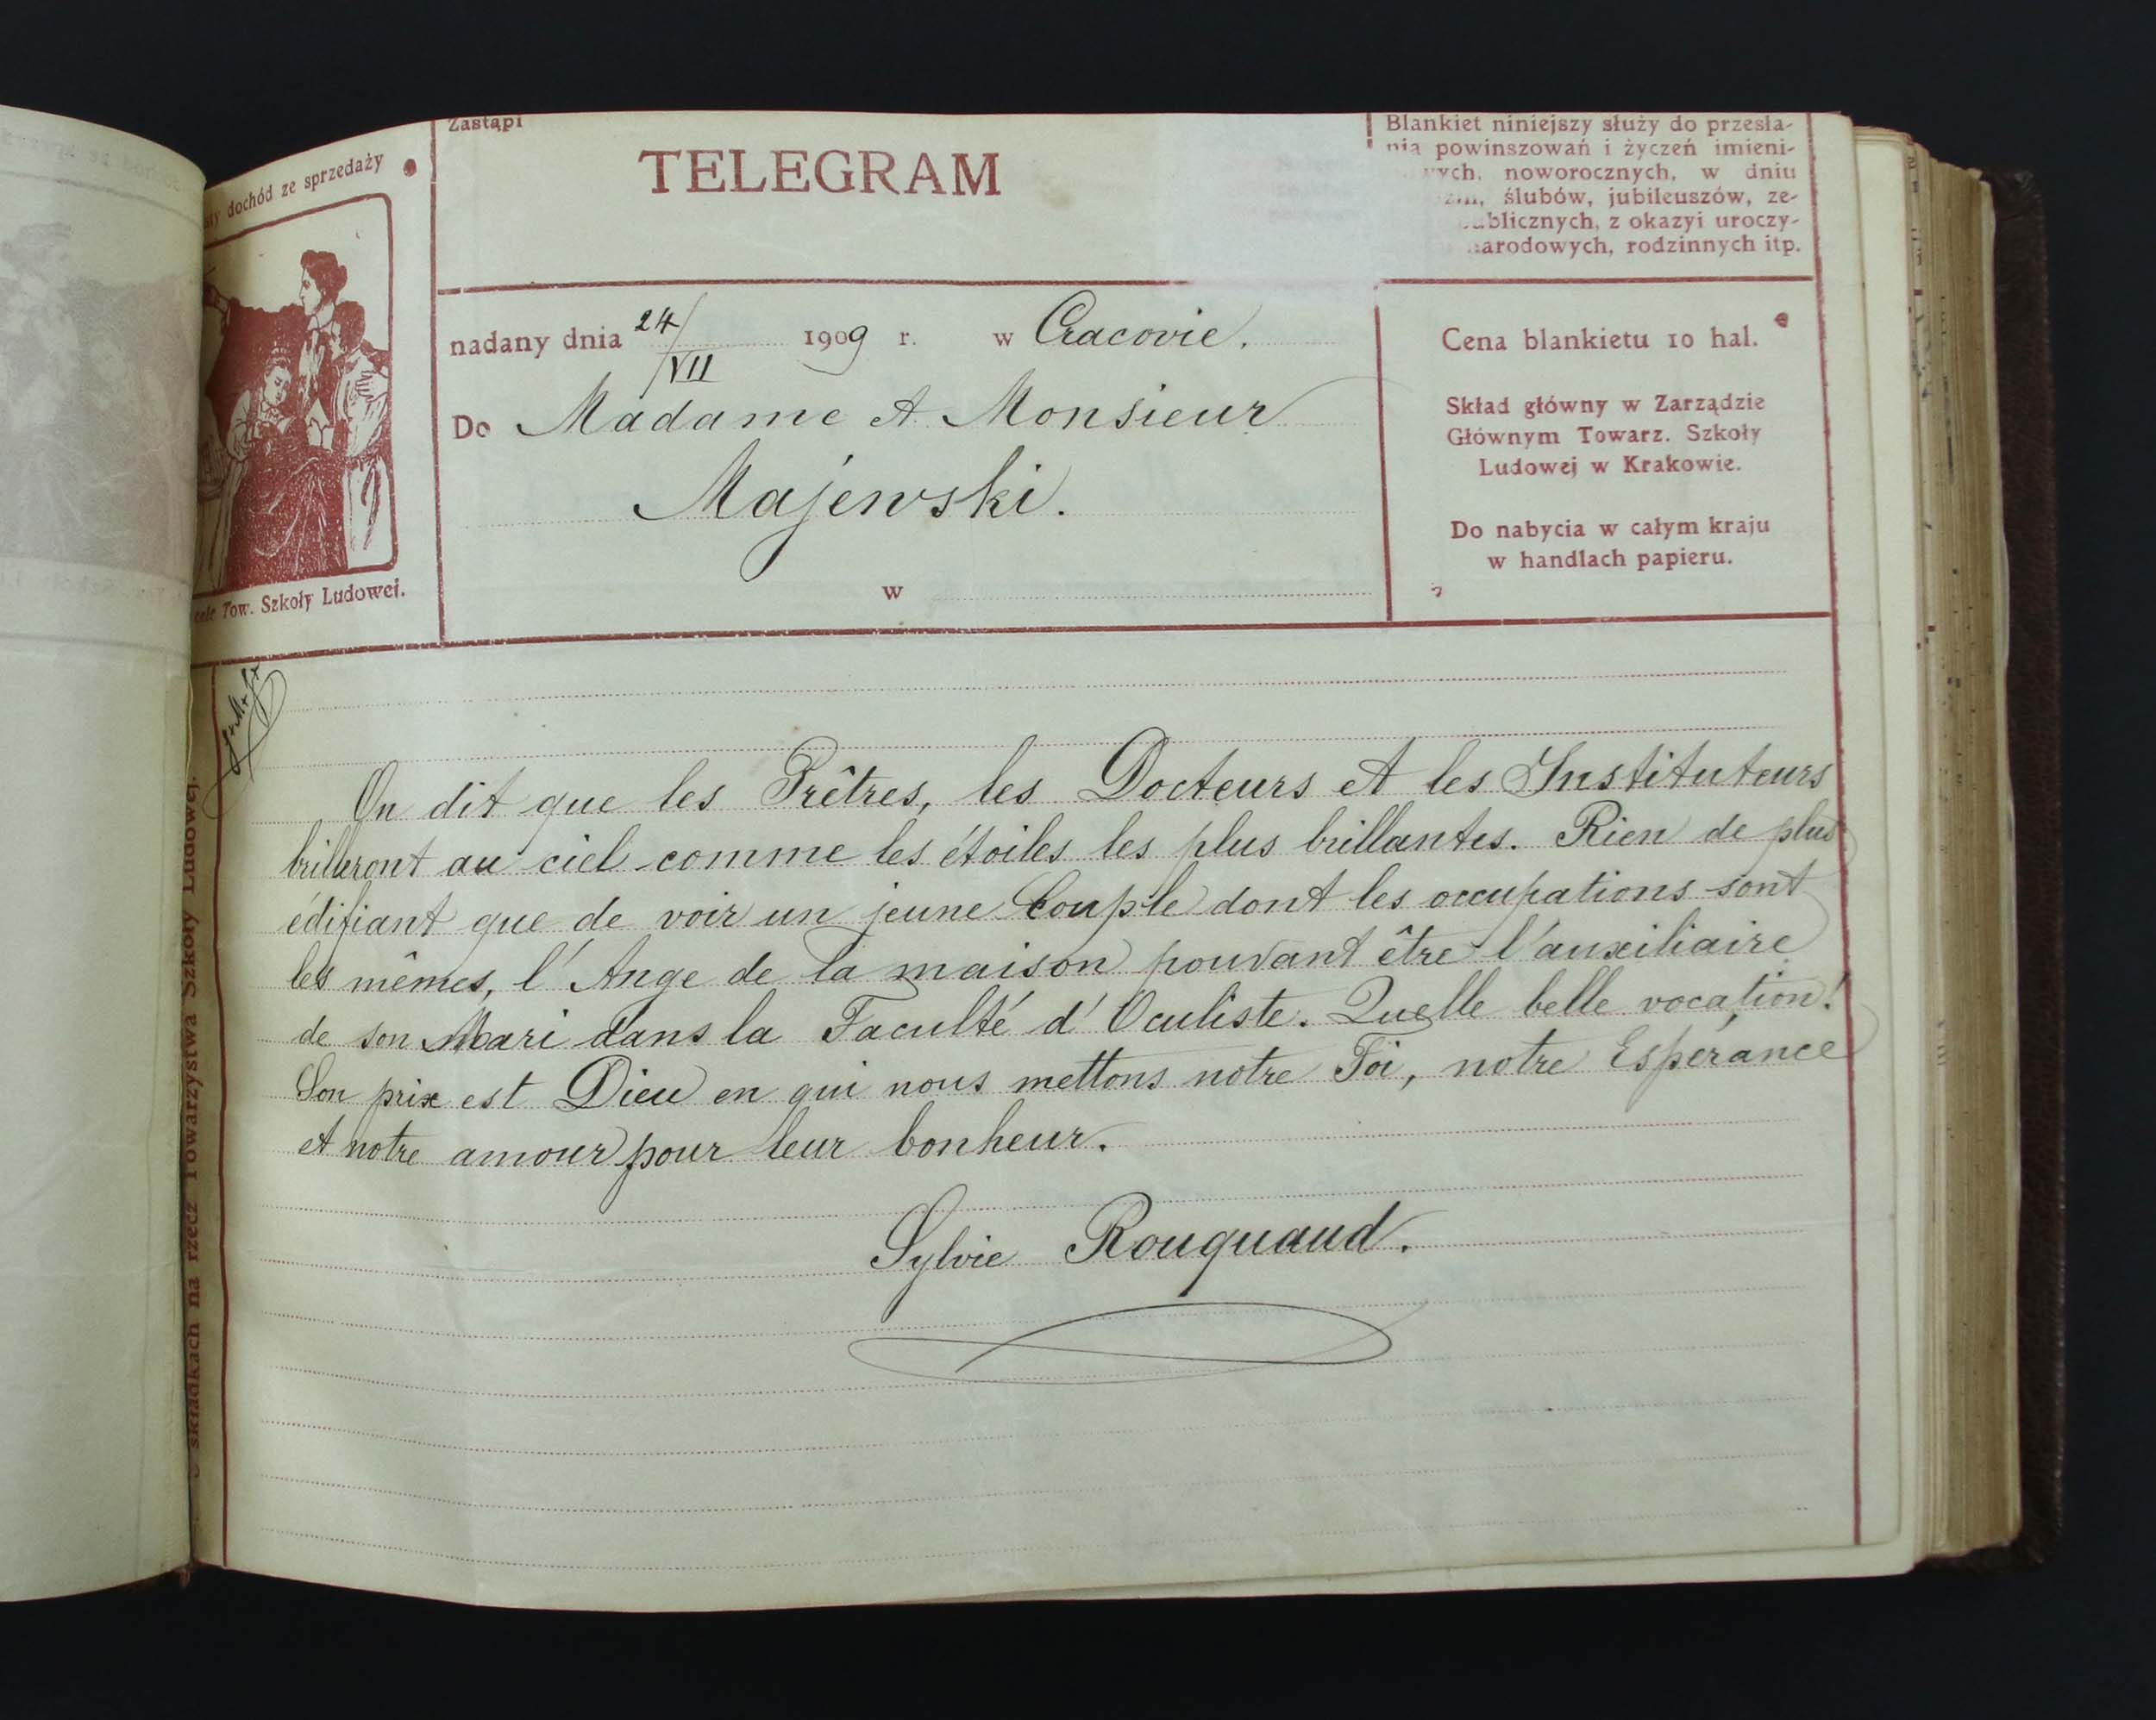 dochód ze sprzedaży
Tow. Szkoły Ludowej.
Zastąpi
TELEGRAM
Blankiet niniejszy służy do przesła-
nia powinszowań i życzeń imieni-
noworocznych, w dniu
ślubów, jubileuszów, ze-
z okazyi uroczy-
rodzinnych itp.
nadany dnia 24/VII 1909 r. w Cracovie.
Do Madame et Monsieur
Majewski.
w
Cena blankietu 10 hal.
Skład główny w Zarządzie
Głównym Towarz. Szkoły
Ludowej w Krakowie.
Do nabycia w całym kraju
w handlach papieru.
składkach na rzecz Towarzystwa Szkoły Ludowej.
On dit que les Prêtres, les Docteurs et les Instituteurs
brilleront au ciel comme les étoiles les plus brillantes. Rien de plus
édifiant que de voir un jeune Couple dont les occupations sont
les mêmes, l'Ange de la maison pouvant être l'auxiliaire
de son Mari dans la Faculté d'Oculiste. Quelle belle vocation!
Son prix est Dieu en qui nous mettons notre Foi, notre Espérance
et notre amour pour leur bonheur.
Sylvie Rouquaud.